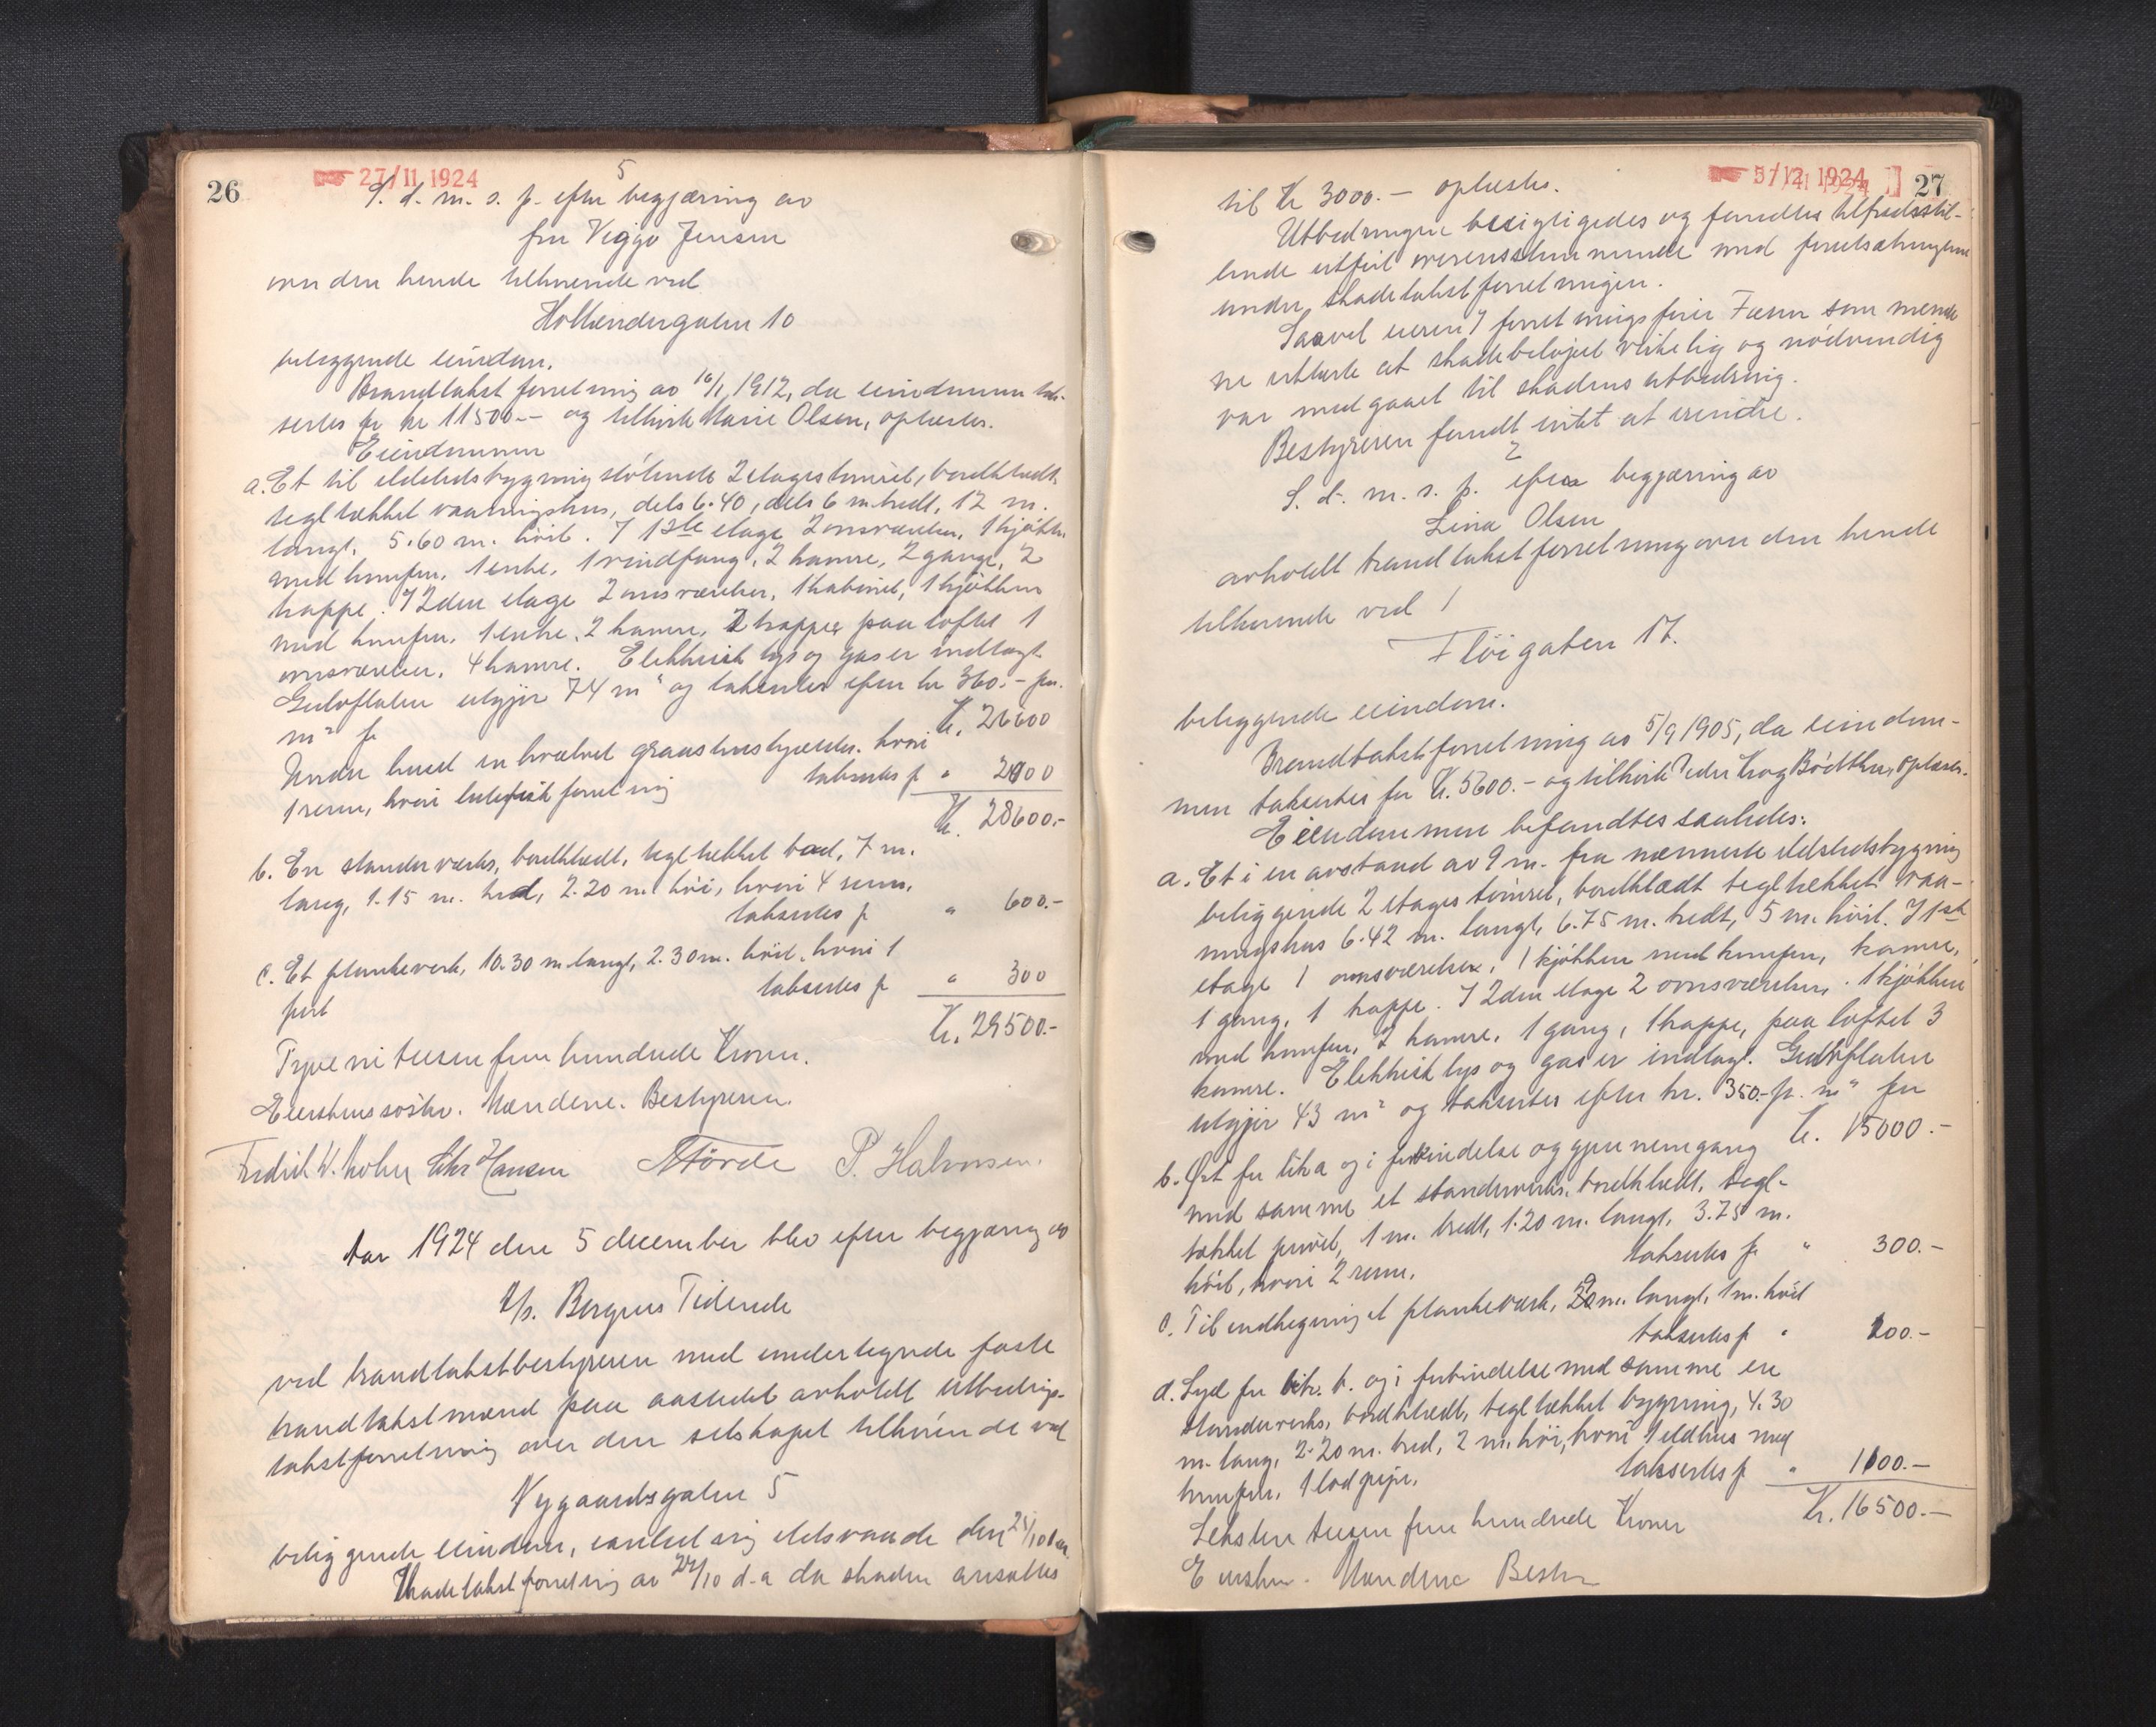 26
27/11 1924
5
S. d. m. s. p. efter begjæring av
fru Viggo Jensen
over den hende tilhørende ved
Hollendergaten 10
beliggende eiendom.
Brandtakst forretning av 16/1 1912, da eiendommen tak-
sertes for kr 11500.- og tilhørte Marie Olsen, oplæstes.
Eiendommen
a. Et til ildstedsbygning støtende 2 etages tømret, bordklædt
tegltækket vaaningshus, dels 6.40, dels 6 m. bredt, 12 m.
langt, 5.60 m. høit. I 1ste etage 2 ovnsværelser, 1 kjøkken
med komfur, 1 entre, 1 vindfang, 2 kamre, 2 gange, 2
trappe. I 2den etage 2 ovnsværelser, 1 kabinet, 1 kjøkken
med komfur, 1 entre, 2 kamre, 2 trapper paa loftet 1
ovnsværelse, 4 kamre. Elektrisk lys og gas er indlagt
Gulvflaten utgjør 74 m² og takseres efter kr 360.- pr.
m² for Kr. 26600
Under huset en hvælvet graastenskjælder, hvori
1 rum, hvori lutefisk forretning taksertes for " 2000
Kr. 28600.-
b. En standerværks, bordklædt, tegltækket bod, 7 m.
lang, 1.15 m. bred, 2.20 m. høi, hvori 4 rum,
taksertes for " 600.-
c. Et plankeverk, 10.30 m. langt, 2.30 m. høit, hvori 1
port taksertes for " 300
Kr. 29500.-
Tyve ni tusen fem hundrede Kroner.
Eiershussøster. Mændene. Bestyreren.
Fredrik W. Kohn Chr Hansen NTörde P. Halvorsen.
Aar 1924 den 5 december blev efter begjæring av
A/s. Bergens Tidende
ved brandtakstbestyreren med undertegnede faste
brandtakstmænd paa aastedet avholdt utbedrings-
takstforretning over den selskapet tilhørende ved
Nygaardsgaten 5
beliggende eiendom, anledning ildsvaade den
Skadetakst forretning av /10 d.a da skaden ansattes
5/12 1924
27
til Kr 3000.- oplæstes.
Utbedringen besigtigedes og fandtes tilfredsstil-
lende utført overensstemmende med forutsætningene
under skadetakstforretningen.
Saavel eieren v/ forretningsfører som mænde
ne uttalte at skadebeløpet virkelig og nødvendig
var medgaaet til skadens utbedring.
Bestyreren fandt intet at erindre.
2
S. d. m. s. p. efter begjæring av
Lina Olsen
avholdt brandtakstforretning over den hende
tilhørende ved
Fløigaten 17.
beliggende eiendom.
Brandtakstforretning av 5/9 1905, da eiendom-
men taksertes for Kr. 5600.- og tilhørte Peder Krog Bødtker, oplæstes.
Eiendommen befandtes saaledes:
a. Et i en avstand av 9 m. fra nærmeste ildstedsbygning
beliggende 2 etages tømret, bordklædt tegltækket vaa-
ningshus 6.42 m. langt, 6.75 m. bredt, 5 m. høit. I 1ste
etage 1 ovnsværelse, 1 kjøkken med komfur, kamre,
1 gang, 1 trappe. I 2den etage 2 ovnsværelser, 1 kjøkken
med komfur, 2 kamre, 1 gang, 1 trappe, paa loftet 3
kamre. Elektrisk lys og gas er indlagt. Gulvflaten
utgjør 43 m² og taksertes efter kr. 350.- pr. m² for
Kr. 15000.-
b. Øst for litra a og i forbindelse og gjennemgang
med samme et standerverks, bordklædt, tegl-
tækket privet, 1 m. bredt, 1.20 m. langt, 3.75 m.
høit, hvori 2 rum. taksertes for " 300.-
c. Til indhegning et plankeværk, m. langt, 1 m. høit
taksertes for " 200.-
d. Syd for litr. b. og i forbindelse med samme en
standerverks, bordklædt, tegltækket bygning, 4.30
m. lang, 2.20 m. bred, 2 m. høi, hvori 1 ildhus med
komfur, 1 lodpipe. taksertes for " 1000.-
Kr. 16500.-
Seksten tusen fem hundrede Kroner
Eiershm. Mændene Bestr